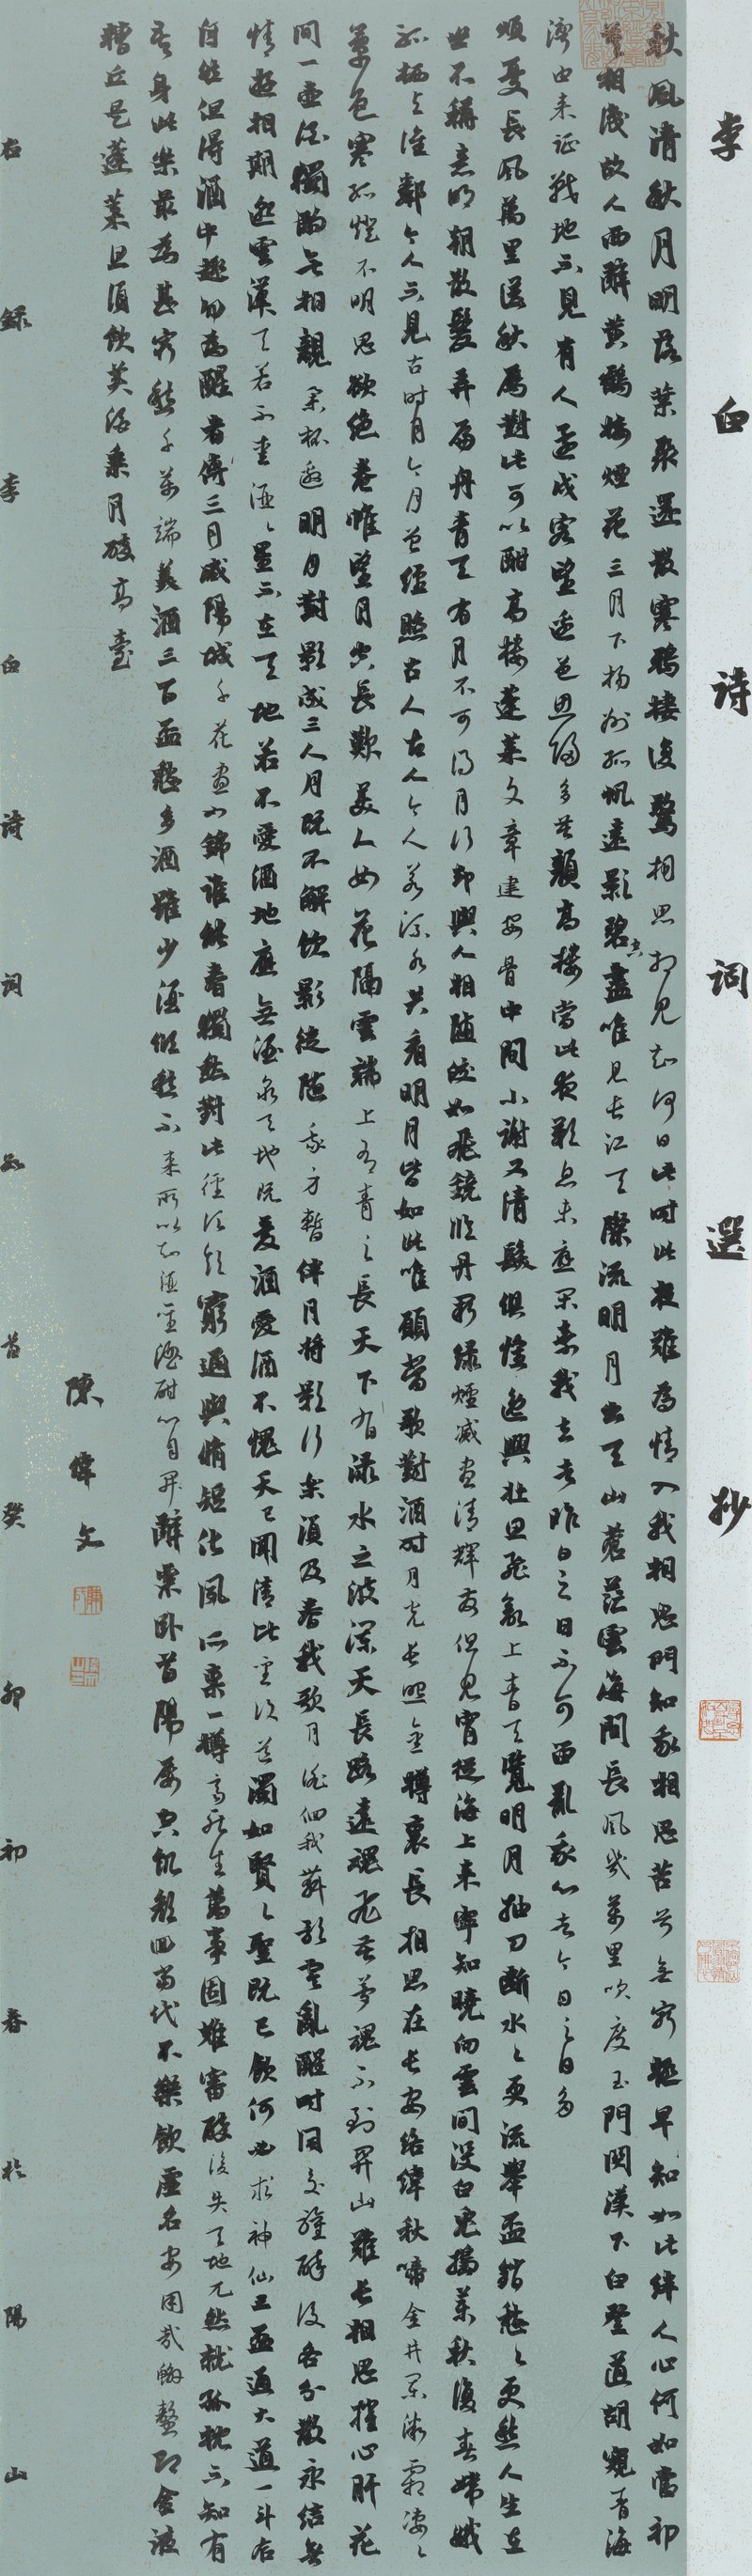 李白诗词選抄
秋風清秋月明落葉聚還散寒鴉棲復驚相思相見知何日此時此夜難為情入我相思門知我相思苦兮無窮極早知如此絆人心何如當初
莫相識故人西辭黄鶴樓煙花三月下揚州孤帆遠影碧空盡唯見長江天際流明月出天山蒼茫雲海間長風幾萬里吹度玉門關漢下白登道胡窺青海
灣由来征戰地不見有人還戍客望邊色思歸多苦顏高樓當此夜歎息未應閑棄我去者昨日之日不可留亂我心者今日之日多
煩憂長風萬里送秋雁對此可以酣高樓蓬萊文章建安骨中間小謝又清發俱懷逸興壯思飛欲上青天覽明月抽刀斷水々更流舉盃銷愁々更愁人生在
世不稱意明朝散髮弄扁舟青天有月不可得月行却與人相隨皎如飛鏡臨丹闕緑煙滅盡清輝發但見宵從海上来寧知曉向雲間没白兔搗藥秋復春嫦娥
孤栖与誰鄰今人不見古時月今月曾經照古人古人今人若流水共看明月皆如此唯願當歌對酒時月光長照金樽裏長相思在長安絡緯秋啼金井闌微霜凄々
簟色寒孤燈不明思欲絶卷帷望月空長歎美人如花隔雲端上有青之長天下有渌水之波瀾天長路遠魂飛苦夢魂不到關山難長相思摧心肝花
間一壺酒獨酌無相親舉杯邀明月對影成三人月既不解飲影徒隨我身暫伴月將影行樂須及春我歌月徘徊我舞影零亂醒時同交歡醉後各分散永結無
情遊相期邈雲漢天若不愛酒々星不在天地若不愛酒地應無酒泉天地既愛酒愛酒不愧天已聞清比聖復道濁如賢々聖既已飲何必求神仙三盃通大道一斗合
自然但得酒中趣勿為醒者傳三月咸陽城千花晝如錦誰能春獨愁對此徑須飲窮通與脩短化夙所稟一樽齊死生萬事固難審醉後失天地兀然就孤枕不知有
吾身此樂最為甚窮愁千萬端美酒三百盃愁多酒雖少酒傾愁不来所以知酒聖酒酣心自開辭粟臥首陽屢空飢顏回當代不樂飲虛名安用哉蟹螯即金液
糟丘是蓬萊且須飲美酒乘月醉高臺
陳偉文
右録李白詩詞首癸卯初春於陽山